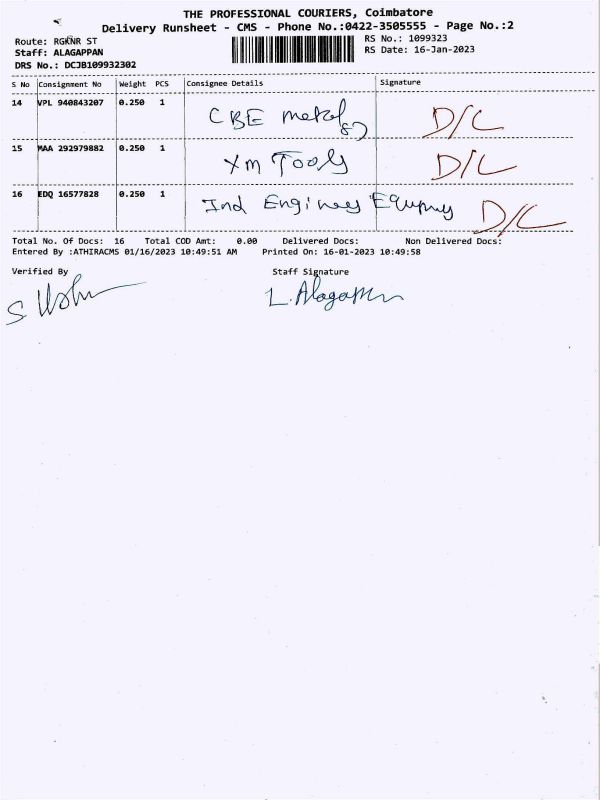 THE PROFESSIONAL COURIERS, Coimbatore
Delivery Runsheet - CMS - Phone No.:0422-3505555 - Page No.:2
Route: RGKNR ST
Staff: ALAGAPPAN
DRS No.: DCJB109932302
RS No.: 1099323
RS Date: 16-Jan-2023
S No Consignment No Weight PCS Consignee Details Signature
14 VPL 940843207 0.250 1 CBE metal D/C
15 MAA 292979882 0.250 1 xm Tools D/C
16 EDQ 16577828 0.250 1 Ind D/C
Total No. Of Docs: 16 Total COD Amt: 0.00 Delivered Docs: Non Delivered Docs:
Entered By :ATHIRACMS 01/16/2023 10:49:51 AM Printed On: 16-01-2023 10:49:58
Verified By Staff Signature
L. Alagappan